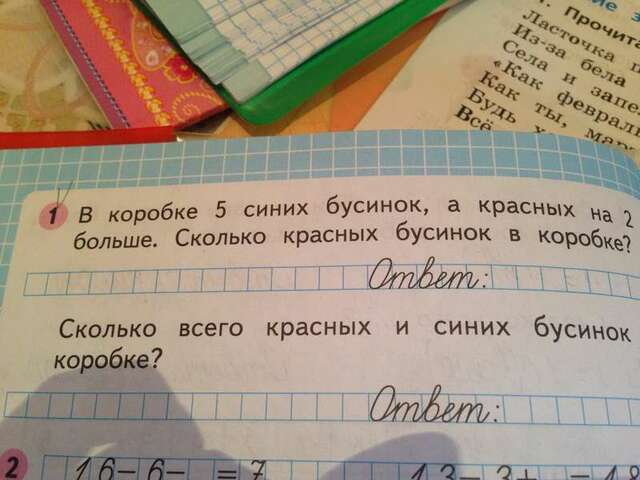 1. Прочита
Ласточка
Из-за бела
Села и запе
«Как феврал
Как ты, мар
Будь
Всё
1 В коробке 5 синих бусинок, а красных на 2
больше. Сколько красных бусинок в коробке?
Ответ:
Сколько всего красных и синих бусинок
коробке?
Ответ:
2 16-6- =7 13-3+ =18